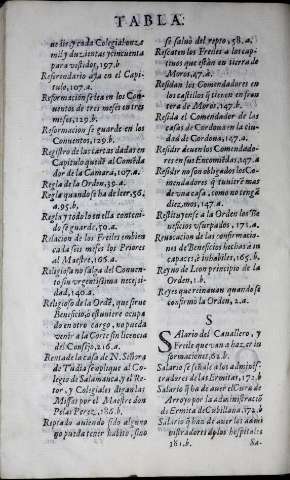 TABLA.
ue sie, y cada Colegial onze
mil y duzientas y cincuenta
para vestidos, 197.b
Refrendario aya en el Capi-
tulo, 107.a.
Reformacion se lea en los Con-
uentos de tres meses en tres
meses, 129.b.
Reformacion se guarde en los
Conuentos, 129.b.
Registro de las cartas dadas en
Capitulo quede al Comeda-
dor de la Camara, 107.a.
Regla de la Orden, 39.a.
Regla quando se ha de leer, 56.
a. 95.b.
Regla y todo lo en ella conteni-
do se guarde, 50.a.
Relacion de los Freiles embien
cada seis meses los Priores
al Maestre, 166.a.
Religiosa no salga del Conuen-
to sin vrgentissima necesi-
dad, 140.a.
Religioso de la Ordē, que sirue
Beneficio, ò estuuiere ocupa
do en otro cargo, no pueda
venir a la Corte sin licencia
del Consejo, 216.a.
Renta de la casa de N. Señora
de Tudia se aplique al Co-
legio de Salamanca, y el Re-
tor, y Colegiales digan las
Missas por el Maestre don
Pelas Perez, 186.b.
Reptado auiendo sido alguno
no pueda tener habito, sino
se saluò del repto, 58.a.
Rescaten los Freiles a los cap-
tiuos que están en tierra de
Moros, 47.a.
Residan los Comendadores en
los castillos q̃ tienen en fron
tera de Moros, 147.b.
Resida el Comendador de las
casas de Cordoua en la ciu-
dad de Cordoua, 147.a.
Residir deuen los Comendado-
res en sus Encomiēdas, 147.a
Residir no son obligados los Co-
mendadores q̃ tuuierē mas
de vna casa, como no tengā
diezmos, 147.a.
Restituyense a la Orden los Be
neficios vsurpados, 171.a.
Reuocacion de las confirmacio-
nes de Beneficios hechas a in
capaces, è inhabiles, 165.b.
Reyno de Leon principio de la
Orden, 1.b.
Reyes que reinauan quando se
confirmò la Orden, 2.a.
S
Salario del Cauallero, y
Freile que van a haz er in-
formaciones, 61.b.
Salario se señale a los adminis-
tradores de las Ermitas, 172.b
Salario q̃ han de auer el Cura de
Arroyo por la administraciō
de Ermita de Cubillana, 172.b
Salario q̃ han de auer los admi
nistradores de los hospitales
181.b.
Sa-